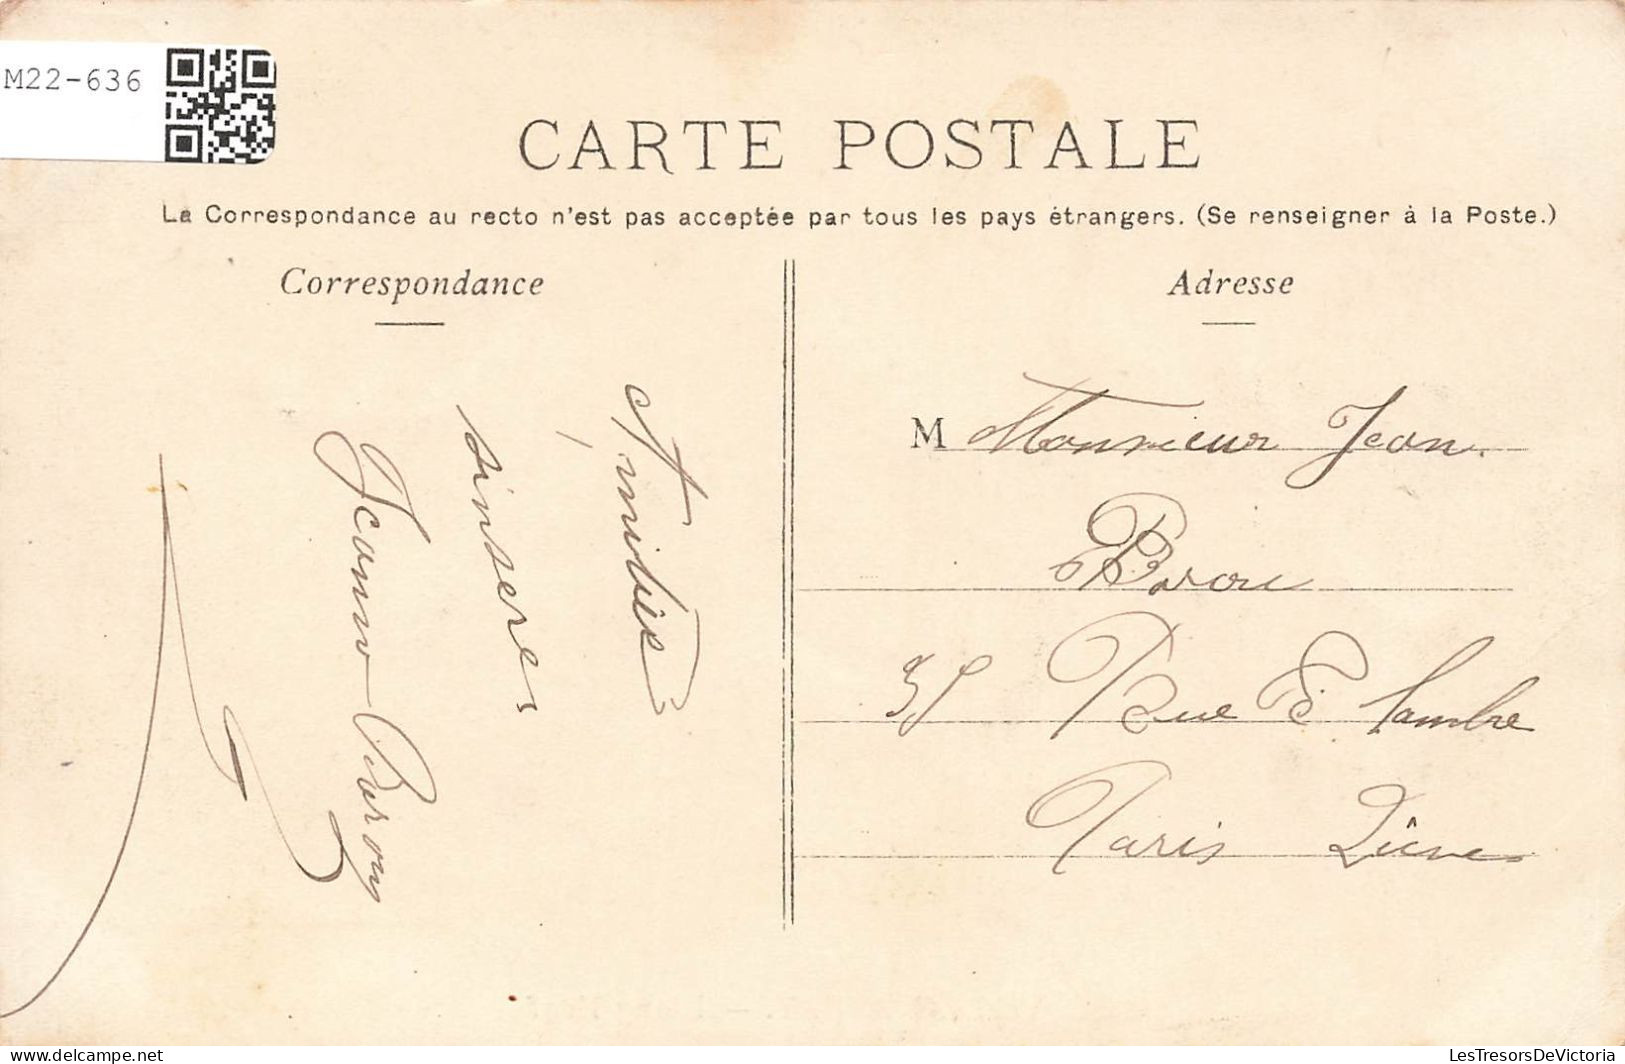 M22-636
CARTE POSTALE
La Correspondance au recto n'est pas acceptée par tous les pays étrangers. (Se renseigner à la Poste.)
Correspondance
Adresse
Amitiés
sinseres
Jeanne
M Monsieur Jean
35 Rue
Paris
delcampe.net
LesTresorsDeVictoria